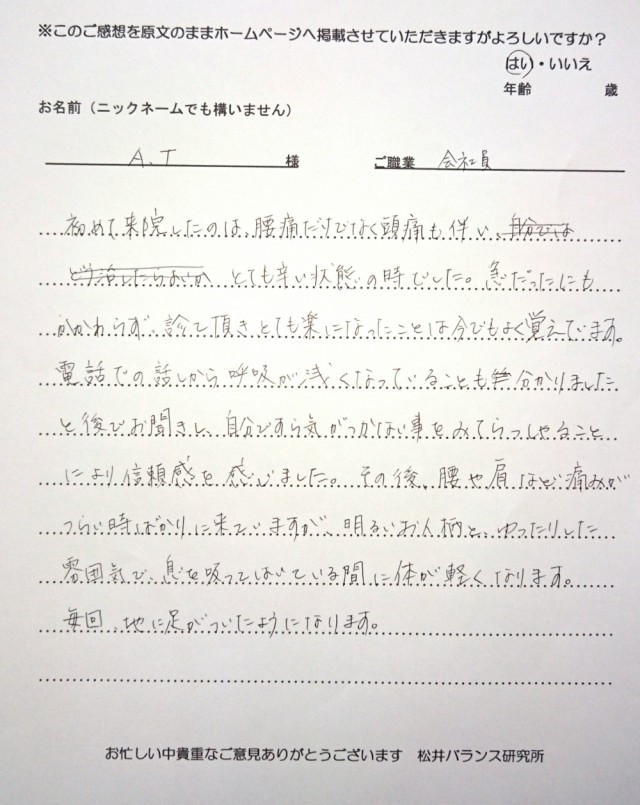 ※このご感想を原文のままホームページへ掲載させていただきますがよろしいですか？
はい・いいえ
年齢 歳
お名前（ニックネームでも構いません）
A.T 様 ご職業 会社員
初めて来院したのは、腰痛だけでなく頭痛も伴い、自分では
どう治したらよいか とても辛い状態の時でした。急だったにも
かかわらず、診て頂きとても楽になったことは今でもよく覚えています。
電話での話しから呼吸が浅くなっていることも分かりました
と後でお聞きし、自分ですら気がつかない事をみてらっしゃること
により信頼感を感じました。その後、腰や肩など痛みが
つらい時ばかりに来ていますが、明るいお人柄と、ゆったりした
雰囲気で、息を吸ってはいている間に体が軽くなります。
毎回、地に足がついたようになります。
お忙しい中貴重なご意見ありがとうございます 松井バランス研究所